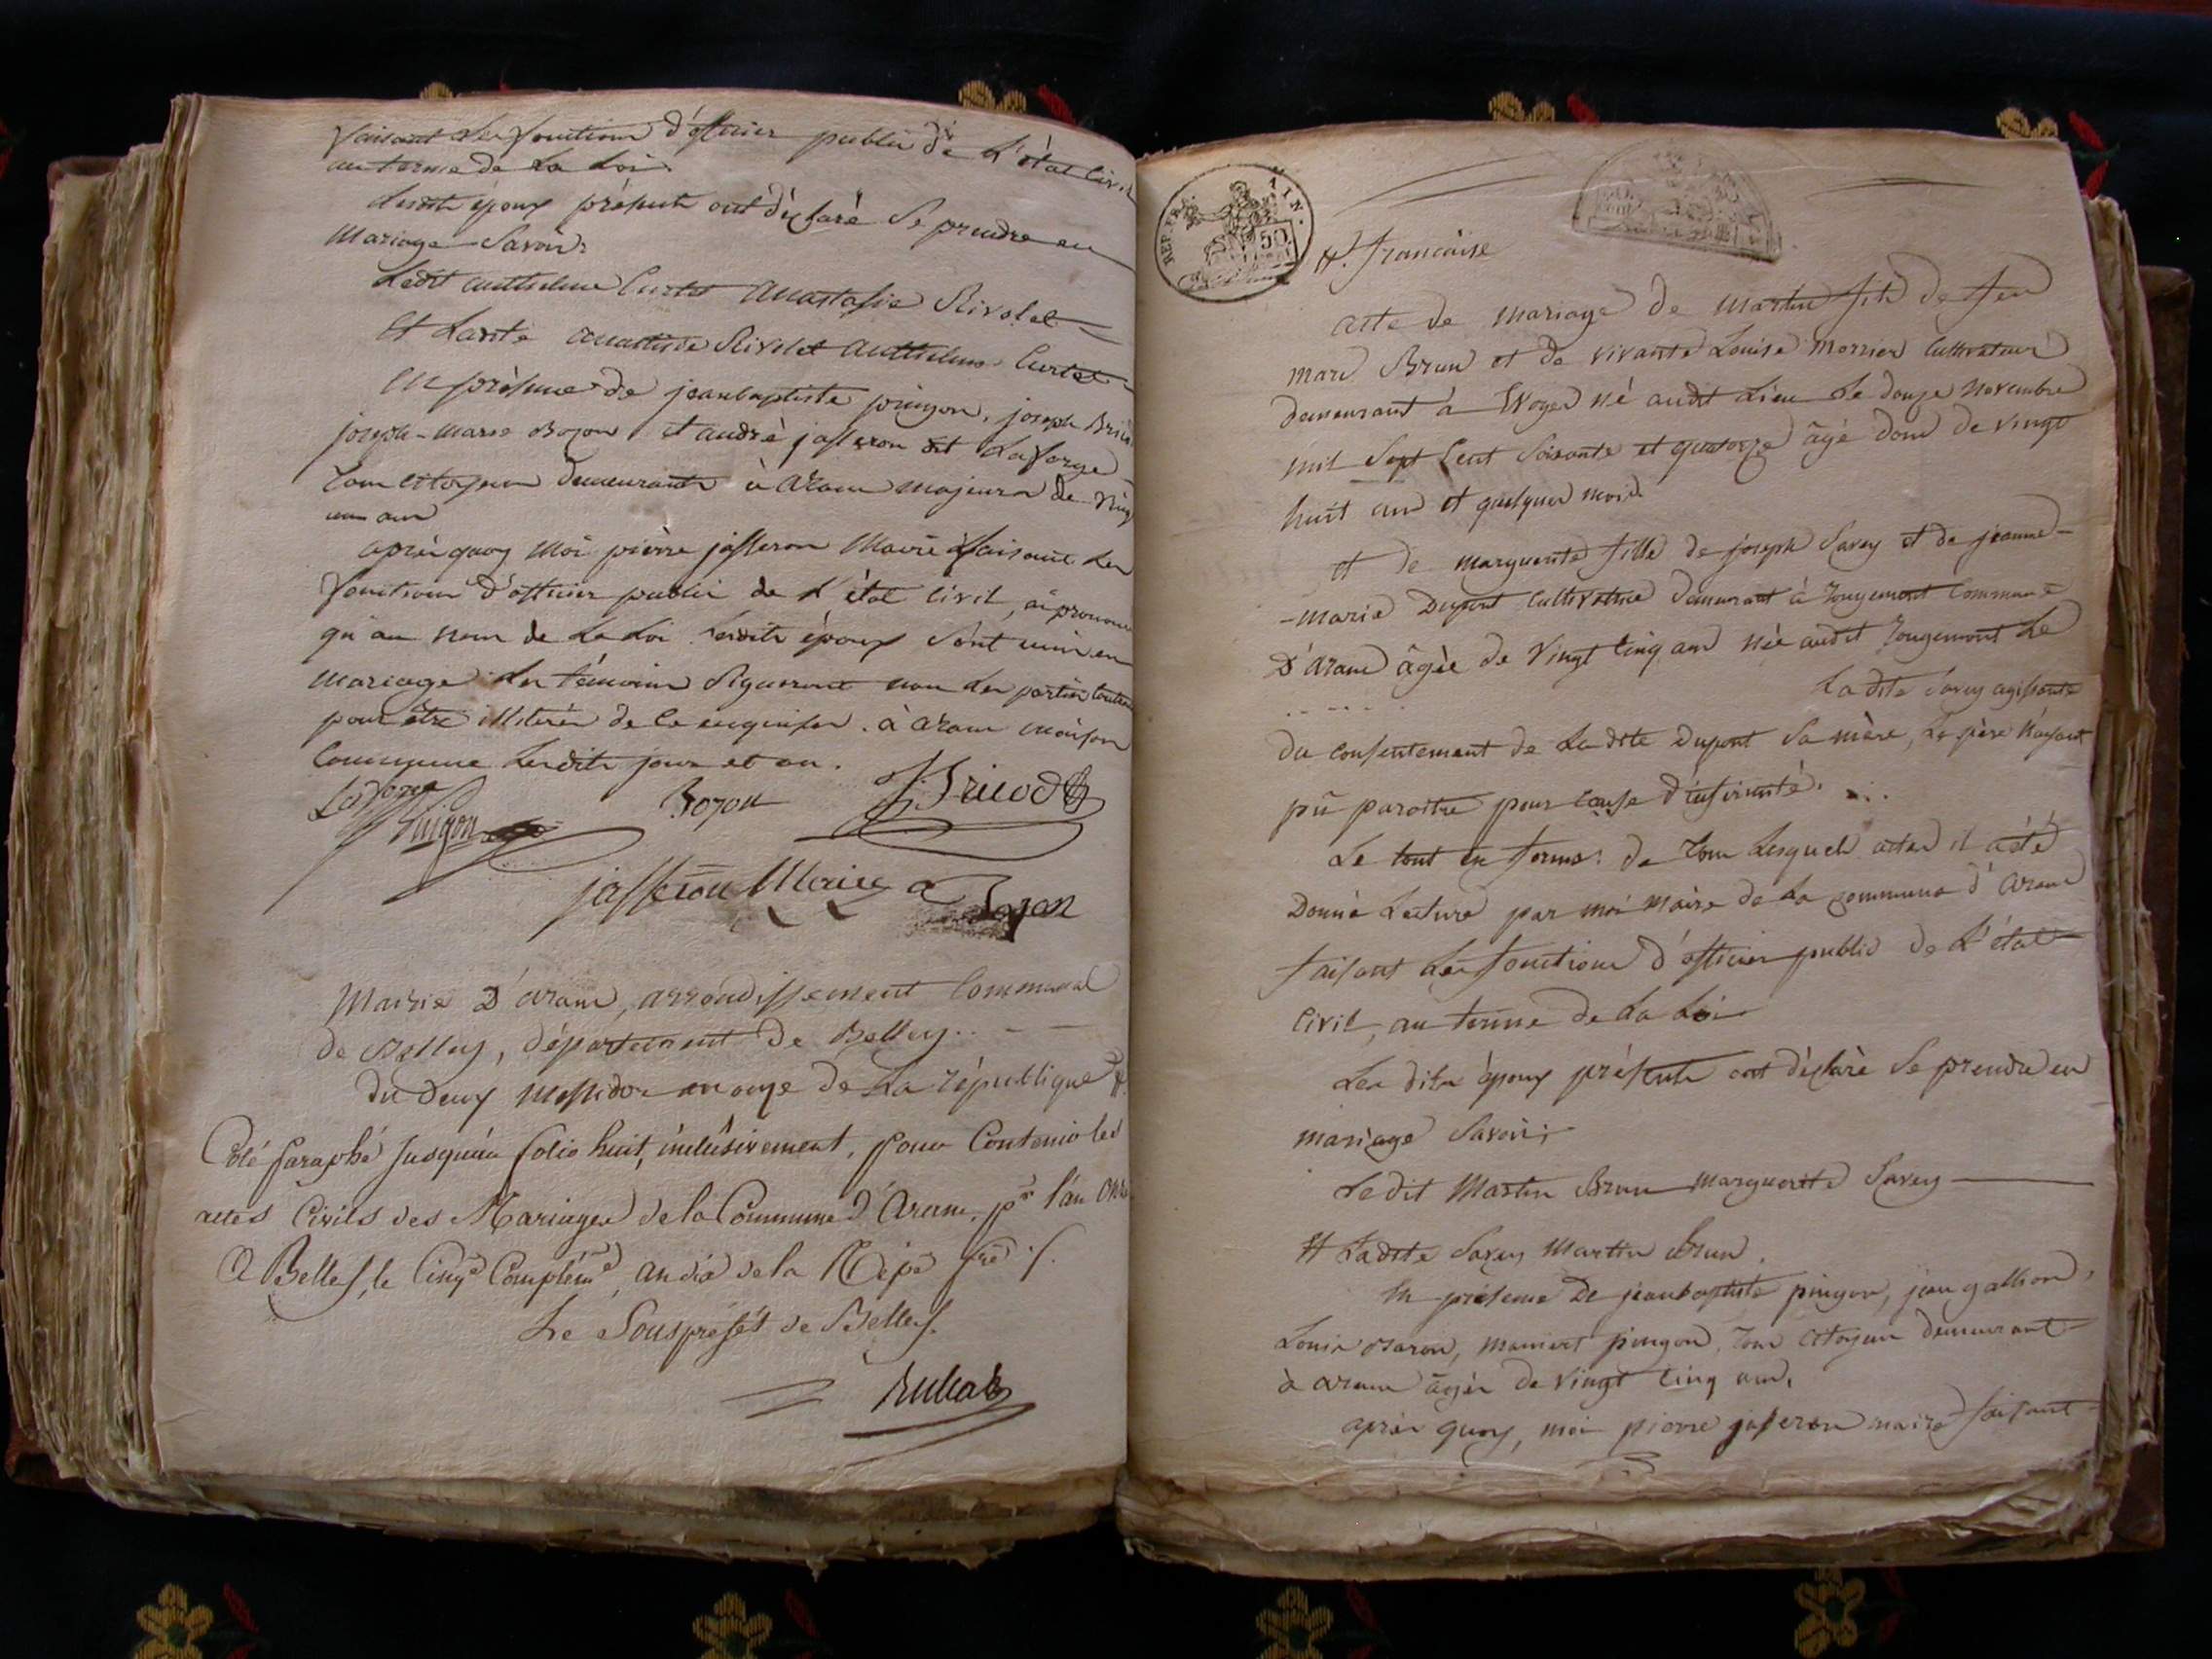 faisant les fonctions d'officier public de L'état Civil
au terme de La Loi.
Lesdits époux présents ont déclaré Se prendre en
Mariage Savoir:
Ledit Anthelme Curtet Anastasie Rivolet
Et Ladite Anastasie Rivolet Anthelme Curtet
En présence de jeanbaptiste pingon, joseph
joseph-marie Bozon et andré jasseron dit Laforge
Tous citoyens demeurants à Aranc majeurs de
un ans
après quoy Moi pierre jasseron Maire faisant Les
fonctions d'officier public de L'état Civil, ai prononcé
qu'au nom de La Loi Lesdits époux Sont unis en
Mariage Les témoins Signeront non Les parties
pour être illiterés de ce enquises. à Aranc maison
Commune Lesdits jour et an.
Laforge Bozon
Pingon
jasseron Maire
Mairie D'aranc, arrondissement Communal
de Belley, département de Belley.. - -
du deux Messidor an onze de La république
Coté paraphé jusqu'au folio huit, inclusivement, pour Contenir les
actes Civils des Mariages de la Commune d'Aranc, pr l'an
A Belley, le Cinqe Complémre, an dix de la Répe fse ./.
Le Souspréfet de Belley.
REP. FRA. AIN.
50
française
acte de mariage de Martin fils de feu
marc Brun et de vivante Louise Cultivateur
demeurant à né audit Lieu Le douze Novembre
mil Sept Cent Soixante et quatorze âgé donc de vingt
huit ans et quelques mois
et de marguerite fille de joseph Savey et de jeanne-
-marie Dupont Cultivatrice demeurant à Rougemont Commune
D'aranc âgée de Vingt Cinq ans née audit Rougemont Le
- - - - - La dite Savey agissante
du consentement de Ladite dupont Sa mère, Le père n'ayant
pû paroitre pour cause d'infirmité.
Le tout en forme: de Tous Lesquels actes il a été
Donné Lecture par moi Maire de La commune d'Aranc
faisant Les fonctions d'officier public de L'état
Civil, au terme de La Loi
Les dits époux présents ont déclaré Se prendre en
mariage Savoir;
Ledit Martin Brun marguerite Savey
Et Ladite Savey Martin Brun.
En présence De jeanbaptiste pingon, jean
Louis pingon, Tous citoyens demeurant
à aranc âgés de vingt Cinq ans,
après quoy, moi pierre jasseron maire faisant